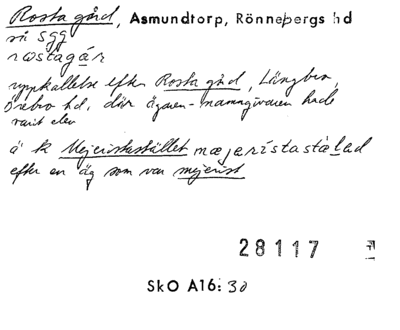 Rosta gård, Asmundtorp, Rönnebergs hd
sgg
rostagár
uppkallelse efter Rosta gård, Längbro,
Örebro hd, där ägaren-namngivaren hade
varit elev
å k Mejeristastället mæjerístastælad
efter en äg som var mejerist
28117
SkO A16: 30